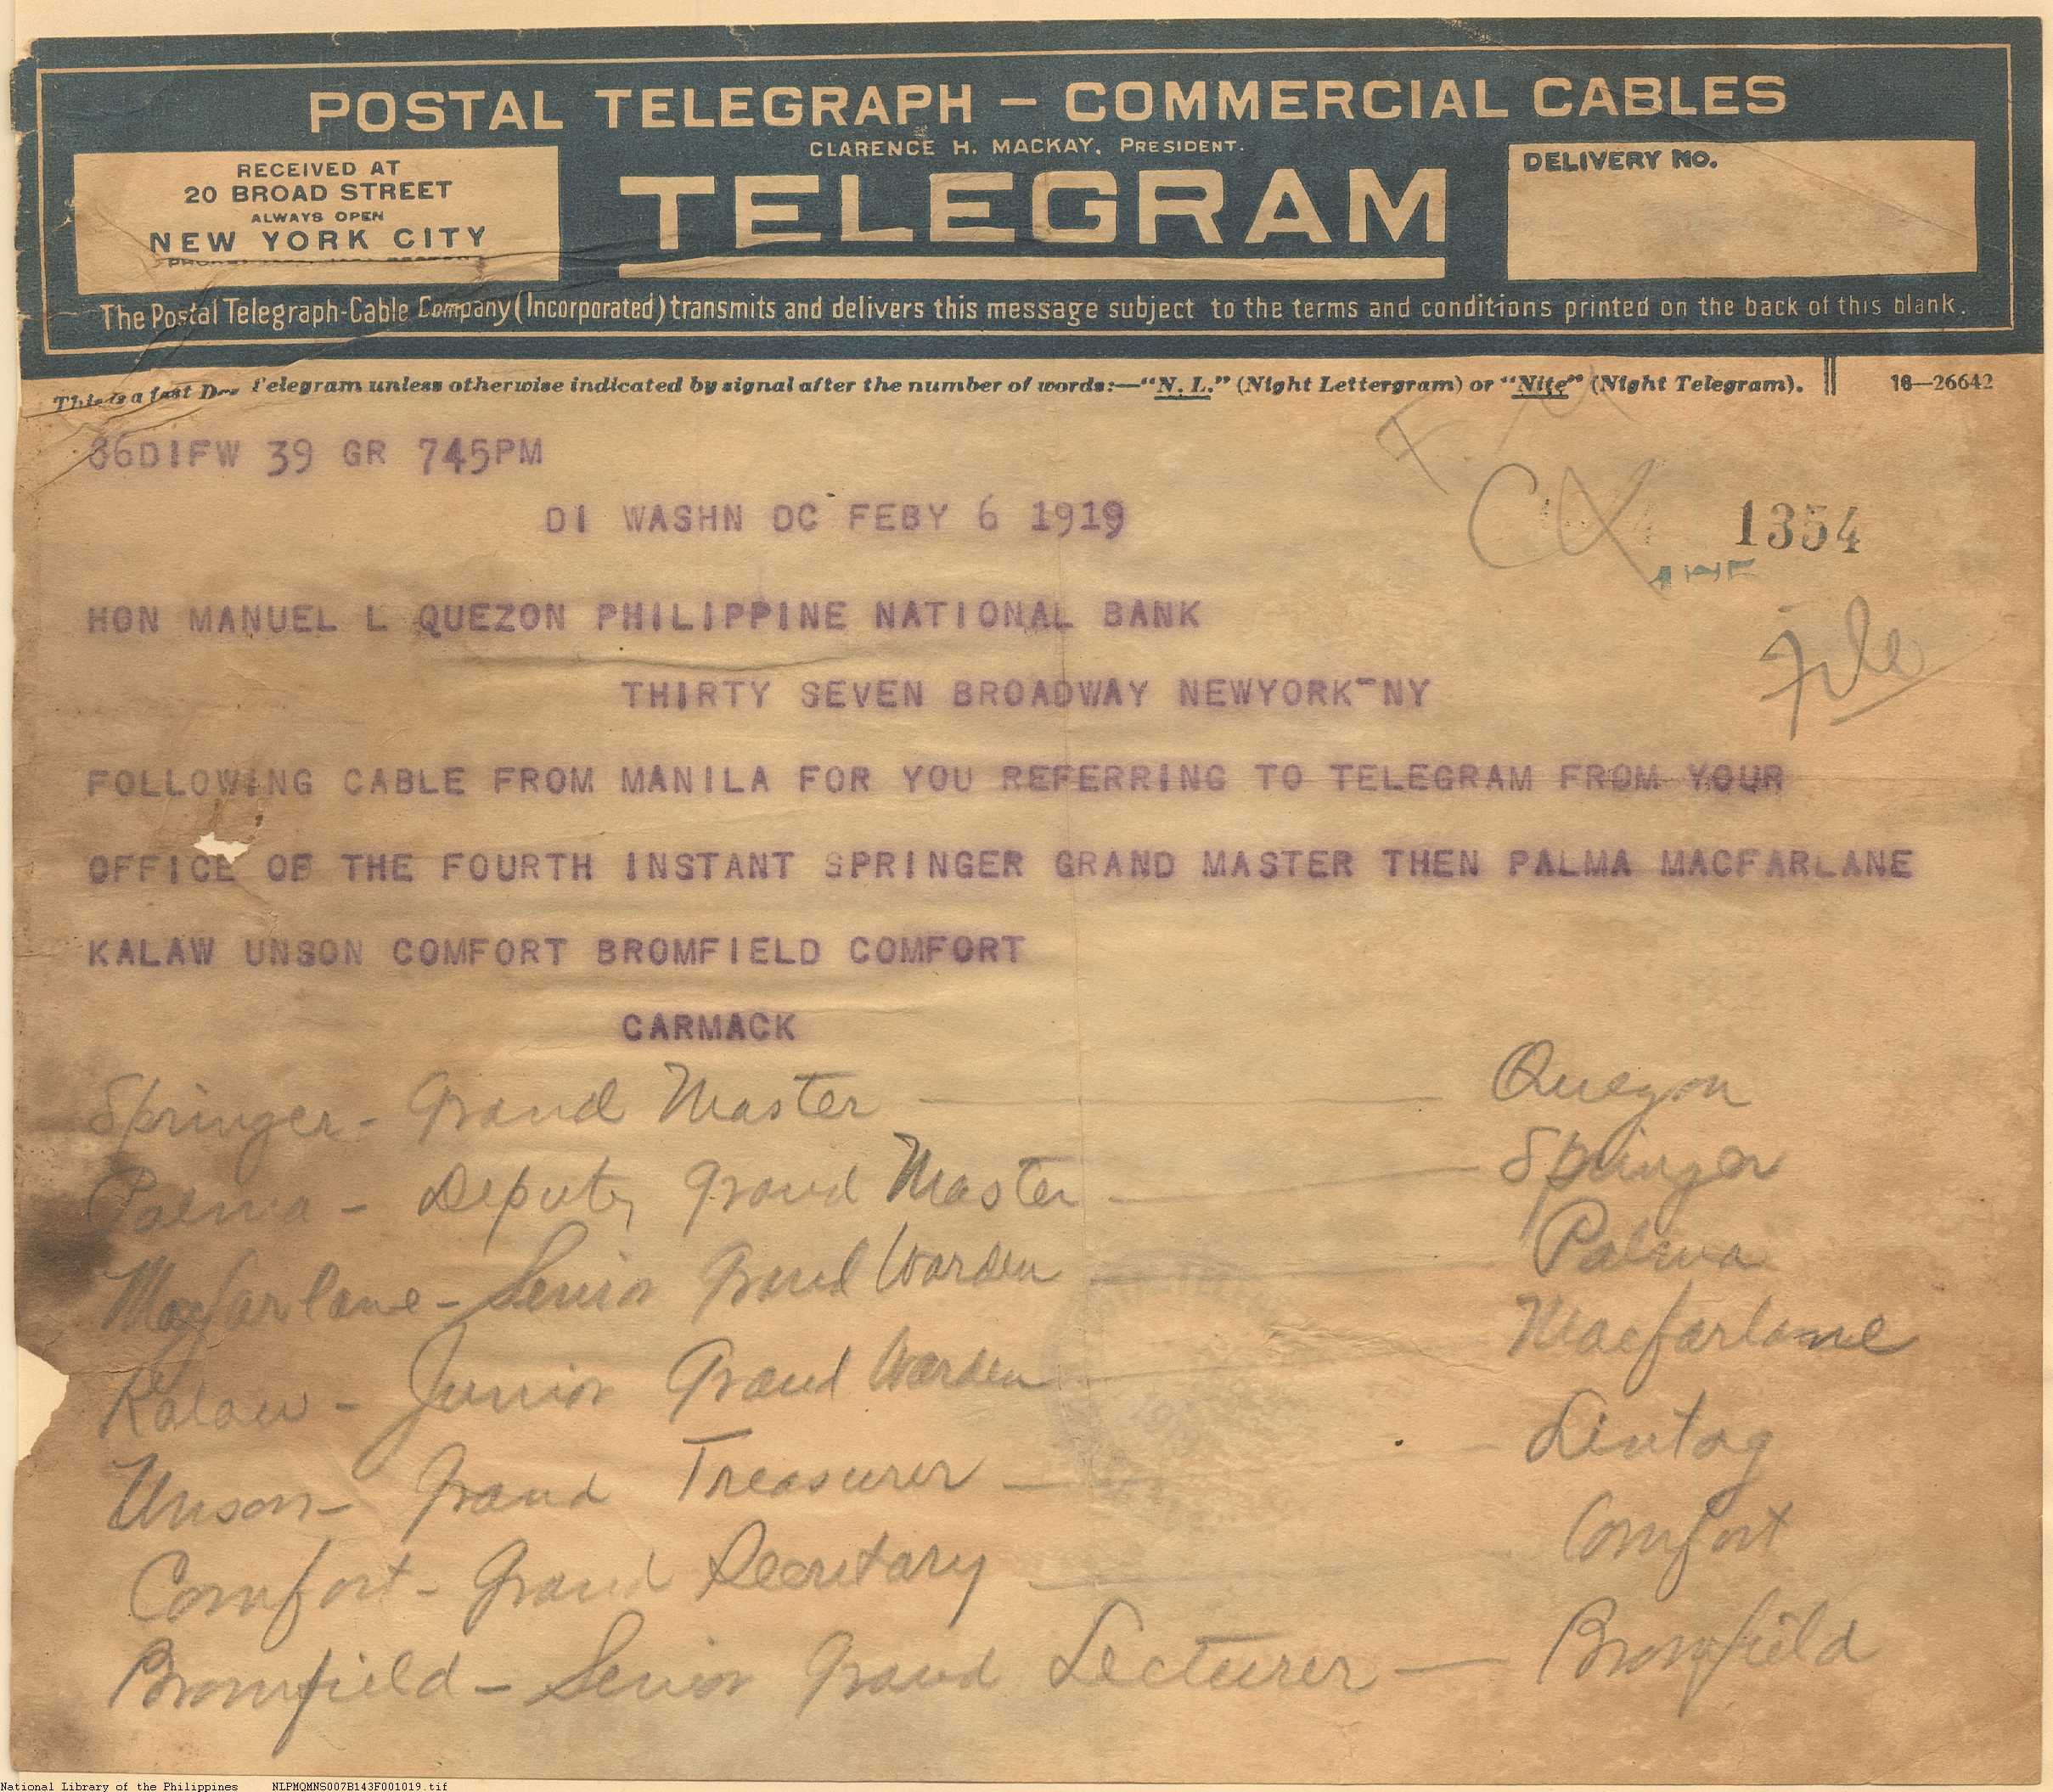 POSTAL TELEGRAPH – COMMERCIAL CABLES
CLARENCE H. MACKAY, PRESIDENT.
RECEIVED AT
20 BROAD STREET
ALWAYS OPEN
NEW YORK CITY
TELEGRAM
DELIVERY NO.
The Postal Telegraph-Cable Company (Incorporated) transmits and delivers this message subject to the terms and conditions printed on the back of this blank.
This is a fast Telegram unless otherwise indicated by signal after the number of words:—"N. L." (Night Lettergram) or "Nite" (Night Telegram). 16—26642
86DIFW 39 GR 745PM
DI WASHN DC FEBY 6 1919
CX 1354
HON MANUEL L QUEZON PHILIPPINE NATIONAL BANK
File
THIRTY SEVEN BROADWAY NEWYORK-NY
FOLLOWING CABLE FROM MANILA FOR YOU REFERRING TO TELEGRAM FROM YOUR
OFFICE OF THE FOURTH INSTANT SPRINGER GRAND MASTER THEN PALMA MACFARLANE
KALAW UNSON COMFORT BROMFIELD COMFORT
CARMACK
Springer - Grand Master — Quezon
Palma - Deputy Grand Master — Springer
Macfarlane - Senior Grand Warden — Palma
Kalaw - Junior Grand Warden — Macfarlane
Unson - Grand Treasurer — Lintag
Comfort - Grand Secretary — Comfort
Bromfield - Senior Grand Lecturer — Bromfield
National Library of the Philippines NLPMQMNS007B143F001019.tif